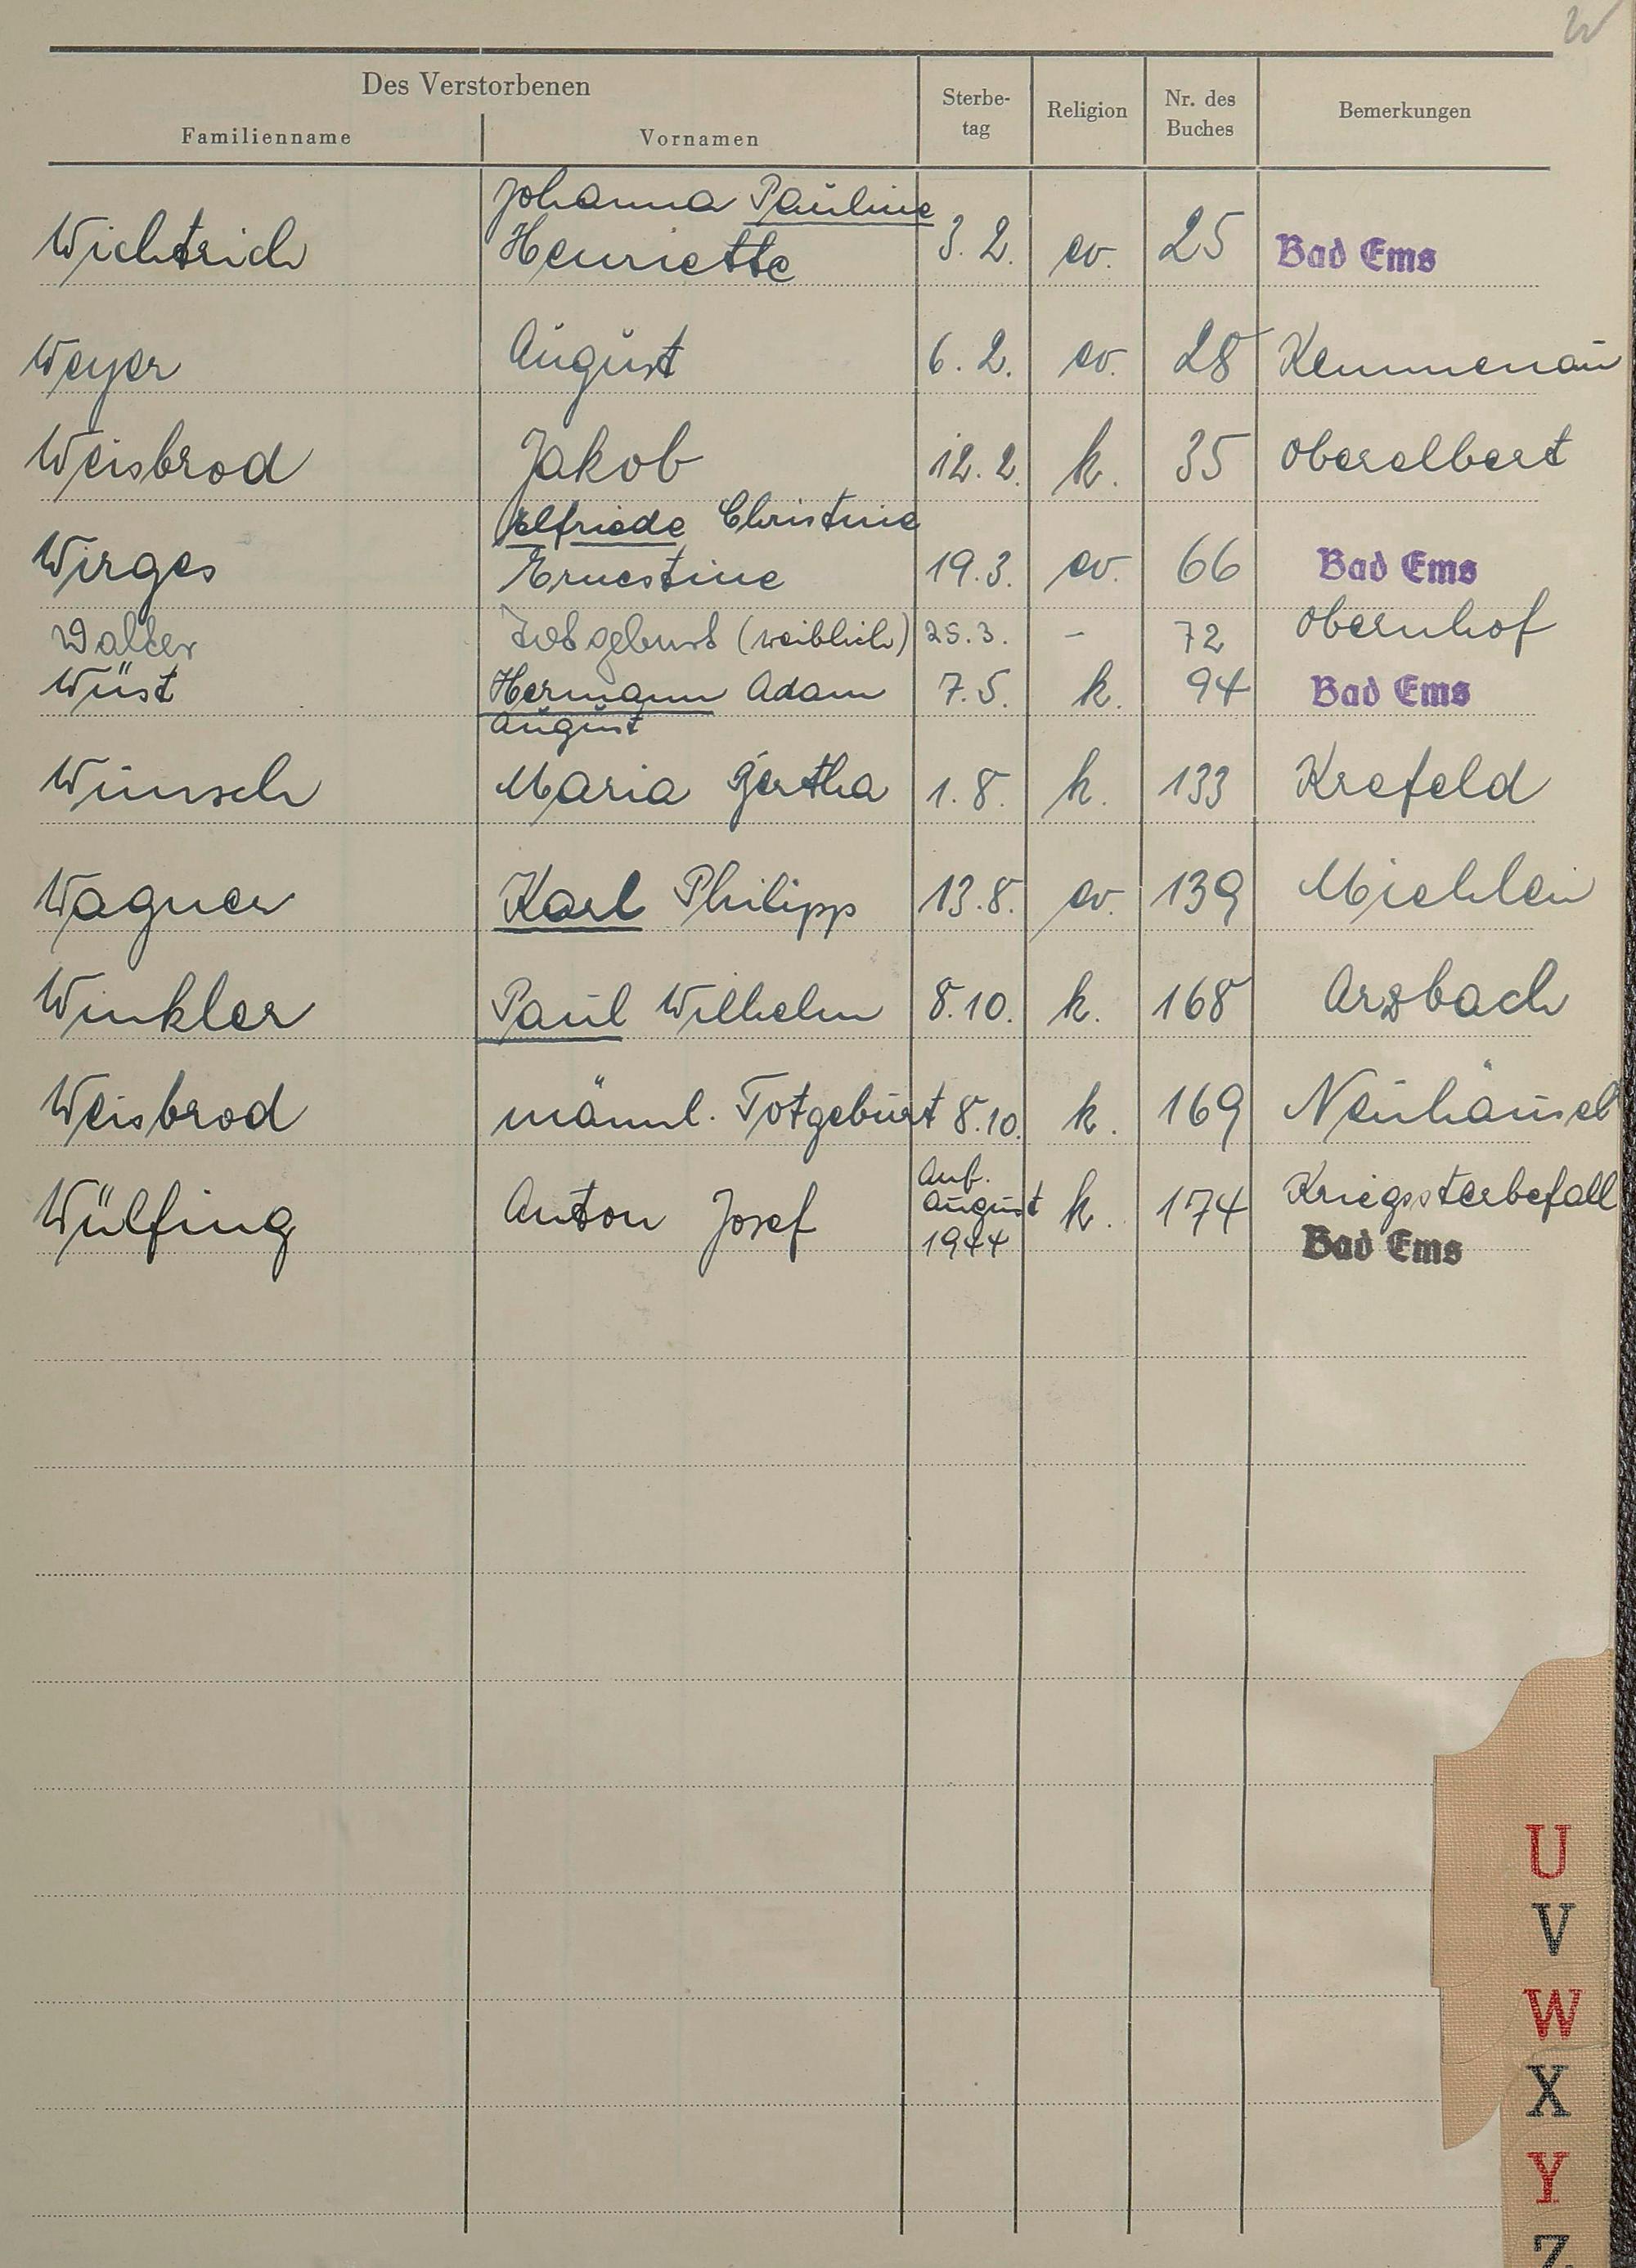 W
Des Verstorbenen
Familienname Vornamen Sterbe-tag Religion Nr. des Buches Bemerkungen
Johanna Pauline
Wichtrich Henriette 3.2. ev. 25 Bad Ems
Weyer August 6.2. ev. 28 Kemmenau
Weisbrod Jakob 12.2. k. 35 Oberelbert
Elfriede Christine
Wirges Ernestine 19.3. ev. 66 Bad Ems
Walter Totgeburt (weiblich) 25.3. - 72 Obernhof
Wüst Hermann Adam 7.5. k. 94 Bad Ems
August
Wunsch Maria Gertha 1.8. k. 133 Krefeld
Wagner Karl Philipp 13.8. ev. 139 Miehlen
Winkler Paul Wilhelm 8.10. k. 168 Arzbach
Weisbrod männl. Totgeburt 8.10. k. 169 Neuhäusel
Anf.
Wülfing Anton Josef August k. 174 Kriegssterbefall
1944 Bad Ems
U
V
W
X
Y
Z